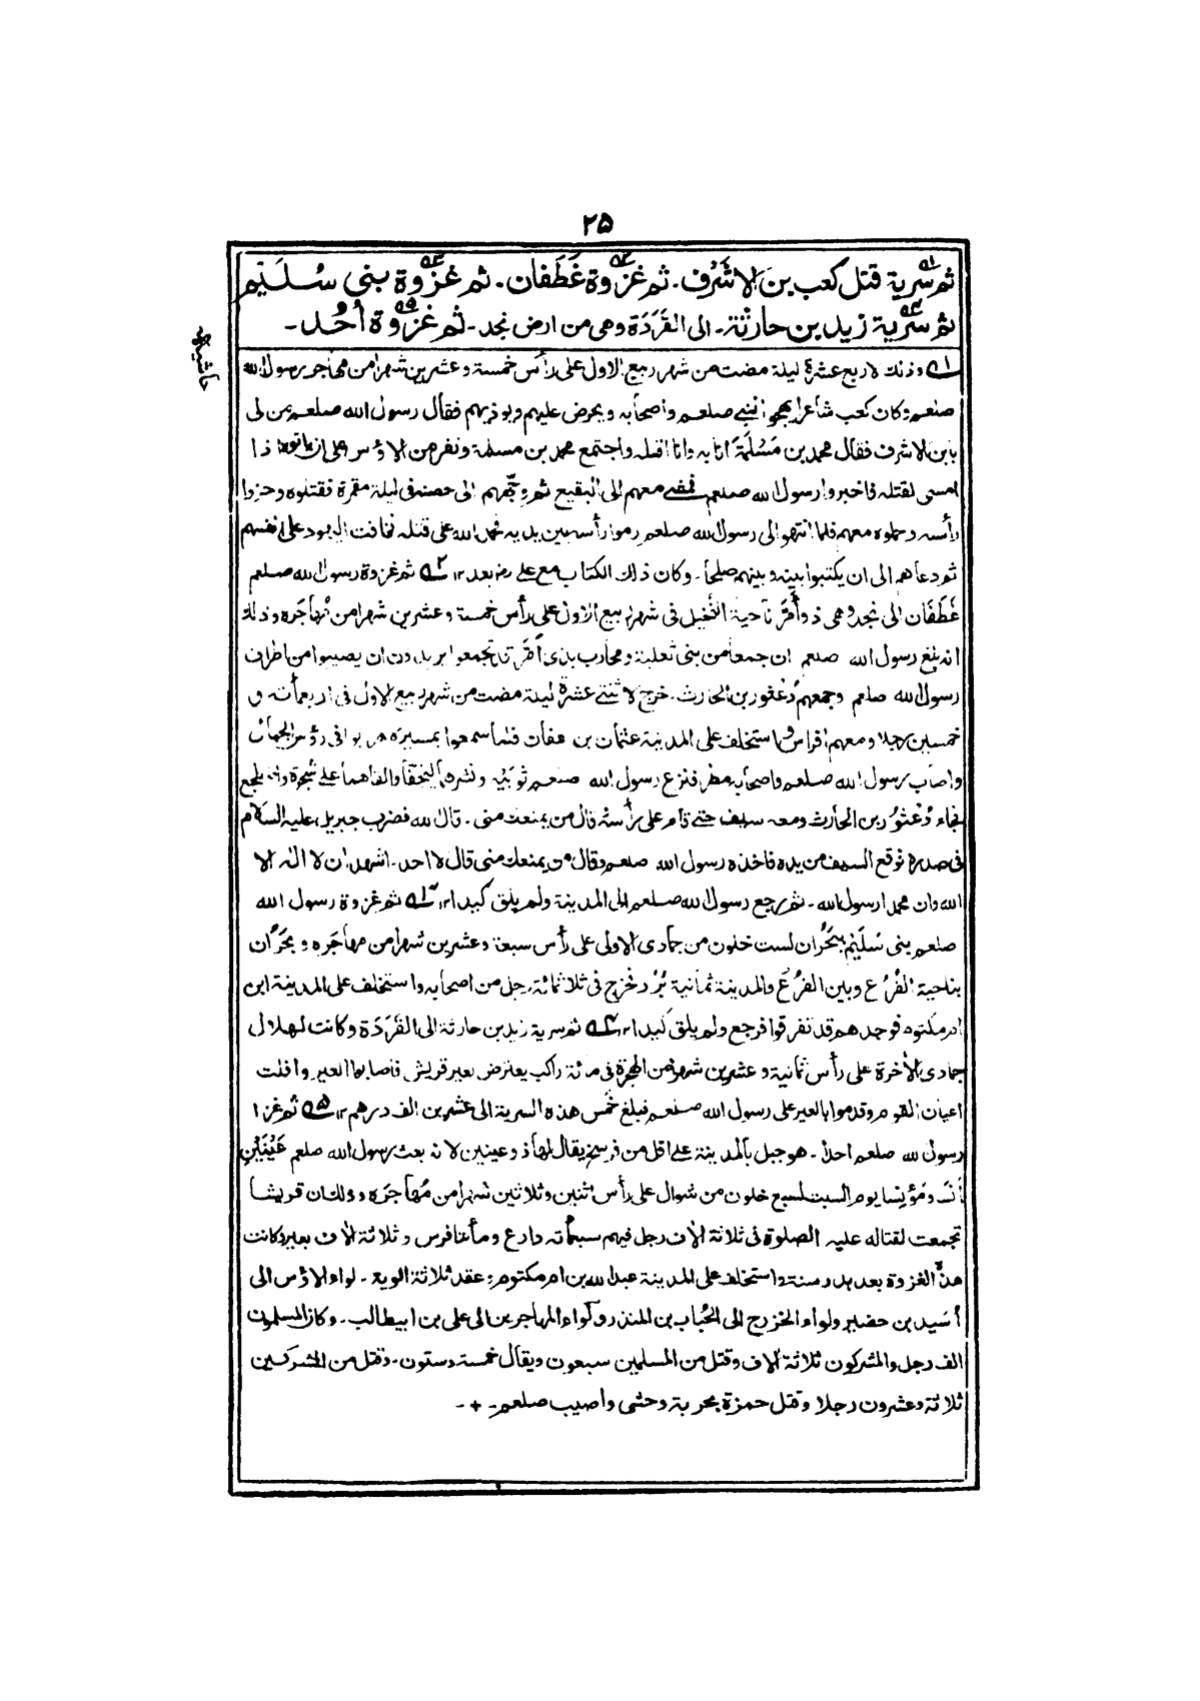 ۲۵
ثم سرية قتل كعب بن الاشرف۔ ثم غزوة غَطَفان۔ ثم غزوة بنى سُلَيم
ثم سرية زيد بن حارثة۔ الى القَرَدَة وهى من ارض نجد۔ ثم غزوة أُحُد۔
حاشيه
۱ وذلك لاربع عشرة ليلة مضت من شهر ربيع الاول على رأس خمسة وعشرين شهرا من مهاجر رسول الله
صلعم وكان كعب شاعرا يهجو النبى صلعم واصحابه ويحرض عليهم ويوذيهم فقال رسول الله صلعم من لى
بابن الاشرف فقال محمد بن مَسْلَمَة انا به وانا اقتله واجتمع محمد بن مسلمة ونفر من الاوس على
امسى لقتله فاخبروا رسول الله صلعم فمضى معهم الى البقيع ثم وجّههم الى حصنه فى ليلة مقمرة فقتلوه وحزوا
رأسه وحملوه معهم فلما انتهوا الى رسول الله صلعم رموا رأسه بين يديه فحمد الله على قتله فخافت اليهود على انفسهم
ثم دعاهم الى ان يكتبوا بينه وبينهم صلحا۔ وكان ذلك الكتاب مع على رضه بعد ۱۲ ۲ ثم غزوة رسول الله صلعم
غَطَفَان الى نجد وهى ذو أَمَرَّ ناحية النخيل فى شهر ربيع الاول على رأس خمسة وعشرين شهرا من مهاجَره وذلك
انه بلغ رسول الله صلعم ان جمعا من بنى ثعلبة ومحارب بذى أمَر قد تجمعوا يريدون ان يصيبوا من اطراف
رسول الله صلعم وجمعهم دُعْثور بن الحارث۔ خرج لاثنتى عشرة ليلة مضت من شهر ربيع الاول فى اربعمائة و
خمسين رجلا ومعهم افراس واستخلف على المدينة عثمان بن عفان فلما سمعوا بمسيره هربوا فى رؤس الجبال
واصاب رسول الله صلعم واصحابه مطر فنزع رسول الله صلعم ثوبَيْه ونشرهما ليَجِفّا والقاهما على شجرة واضطجع
فجاء دُعْثُور بن الحارث ومعه سيف حتى قام على رأسه قال من يمنعك منى۔ قال الله فضرب جبريل عليه السلام
فى صدره فوقع السيف من يده فاخذه رسول الله صلعم وقال من يمنعك منى قال لا احد۔ اشهد ان لا اله الا
الله وان محمدا رسول الله۔ ثم رجع رسول الله صلعم الى المدينة ولم يلق كيدا ۱۲ ۳ ثم غزوة رسول الله
صلعم بنى سُلَيْم ببَحْران لست خلون من جمادى الاولى على رأس سبعة وعشرين شهرا من مهاجَره و بحَران
بناحية الفُرُع وبين الفُرُع والمدينة ثمانية بُرُد فخرج فى ثلاثمائة رجل من اصحابه واستخلف على المدينة ابن
ام مكتوم فوجدهم قد تفرقوا فرجع ولم يلق كيدا ۱۲ ۴ ثم سرية زيد بن حارثة الى القَرَدَة وكانت لهلال
جمادى الأخرة على رأس ثمانية وعشرين شهرا من الهجرة فى مائة راكب يعترض بعير قريش فاصابوا العير وافلت
اعيان القوم وقدموا بالعير على رسول الله صلعم فبلغ خُمس هذه السرية الى عشرين الف درهم ۱۲ ۵ ثم غزا
رسول الله صلعم احدا۔ هو جبل بالمدينة على اقل من فرسخ يقال لها ذو عينين لانه بعث رسول الله صلعم عَيْنَيْن
أنَسا ومُؤنِسا يوم السبت لسبع خلون من شوال على رأس اثنين وثلاثين شهرا من مُهاجَره وذلك ان قريشا
تجمعت لقتاله عليه الصلوة فى ثلاثة الاف رجل فيهم سبعمائة دارع ومأتا فرس وثلاثة الاف بعير وكانت
هذه الغزوة بعد بدر سنة واستخلف على المدينة عبد الله بن ام مكتوم وعقد ثلاثة الوية۔ لواء الاوس الى
أُسَيد بن حضير ولواء الخزرج الى الحُباب بن المنذر ولواء المهاجرين الى على بن ابيطالب۔ وكان المسلمون
الف رجل والمشركون ثلاثة الاف وقتل من المسلمين سبعون ويقال خمسة وستون۔ وقتل من المشركين
ثلاثة وعشرون رجلا وقتل حمزة بحربة وحشى واصيب صلعم۔ + ۔